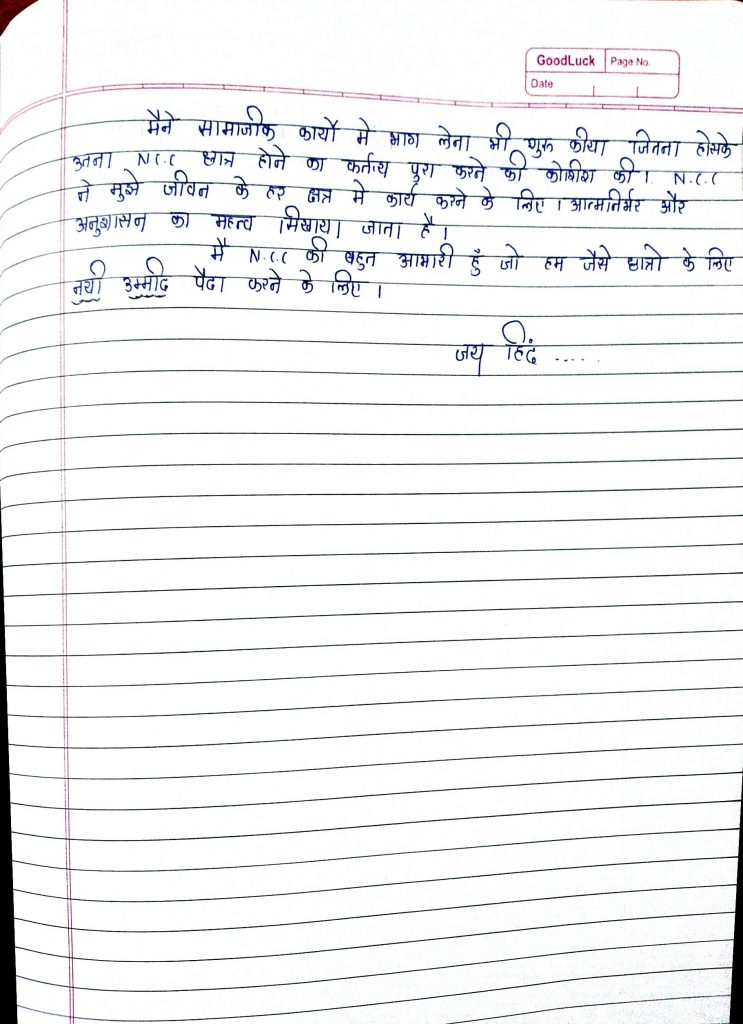 GoodLuck Page No.
Date
मैने सामाजीक कार्यो मे भाग लेना भी शुरू कीया जितना होसके
उतना N.C.C छात्र होने का कर्तव्य पुरा करने की कोशिश की। N.C.C
ने मुझे जीवन के हर क्षत्र मे कार्य करने के लिए। आत्मनिर्भर और
अनुशासन का महत्व सिखाया जाता है।
मै N.C.C की बहुत आभारी हुँ जो हम जैसे छात्रो के लिए
नयी उम्मीद पैदा करने के लिए।
जय हिंद .....